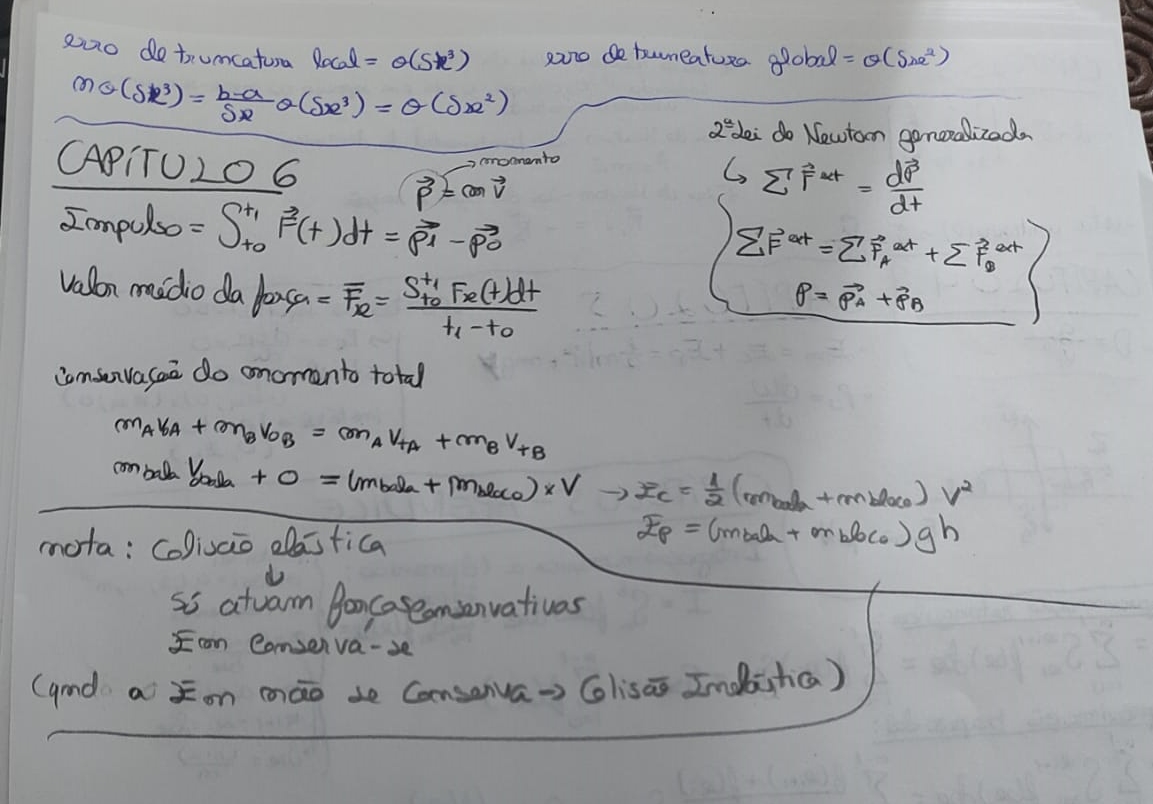 erro de truncatura local = O(δx³) erro de truncatura global = O(δx²)
n O(δx³) = b-a/δx O(δx³) = O(δx²)
CAPÍTULO 6
p⃗ = m v⃗ → momento
Impulso = ∫t0^t1 F⃗(t)dt = p⃗1 - p⃗0
Valor médio da força = F̅x = ∫t0^t1 Fx(t)dt / t1 - t0
2ª Lei de Newton generalizada
↳ Σ F⃗ ext = dp⃗/dt
Σ F⃗ ext = Σ F⃗A ext + Σ F⃗B ext
p = p⃗A + p⃗B
conservação do momento total
mA v0A + mB v0B = mA vtA + mB vtB
mbala vbala + 0 = (mbala + mbloco) × V → Ec = 1/2 (mbala + mbloco) V²
Ep = (mbala + mbloco) g h
nota: Colisão elástica
↓
Só atuam forças conservativas
Em conserva-se
(qnd a Em não se conserva → Colisão Inelástica)